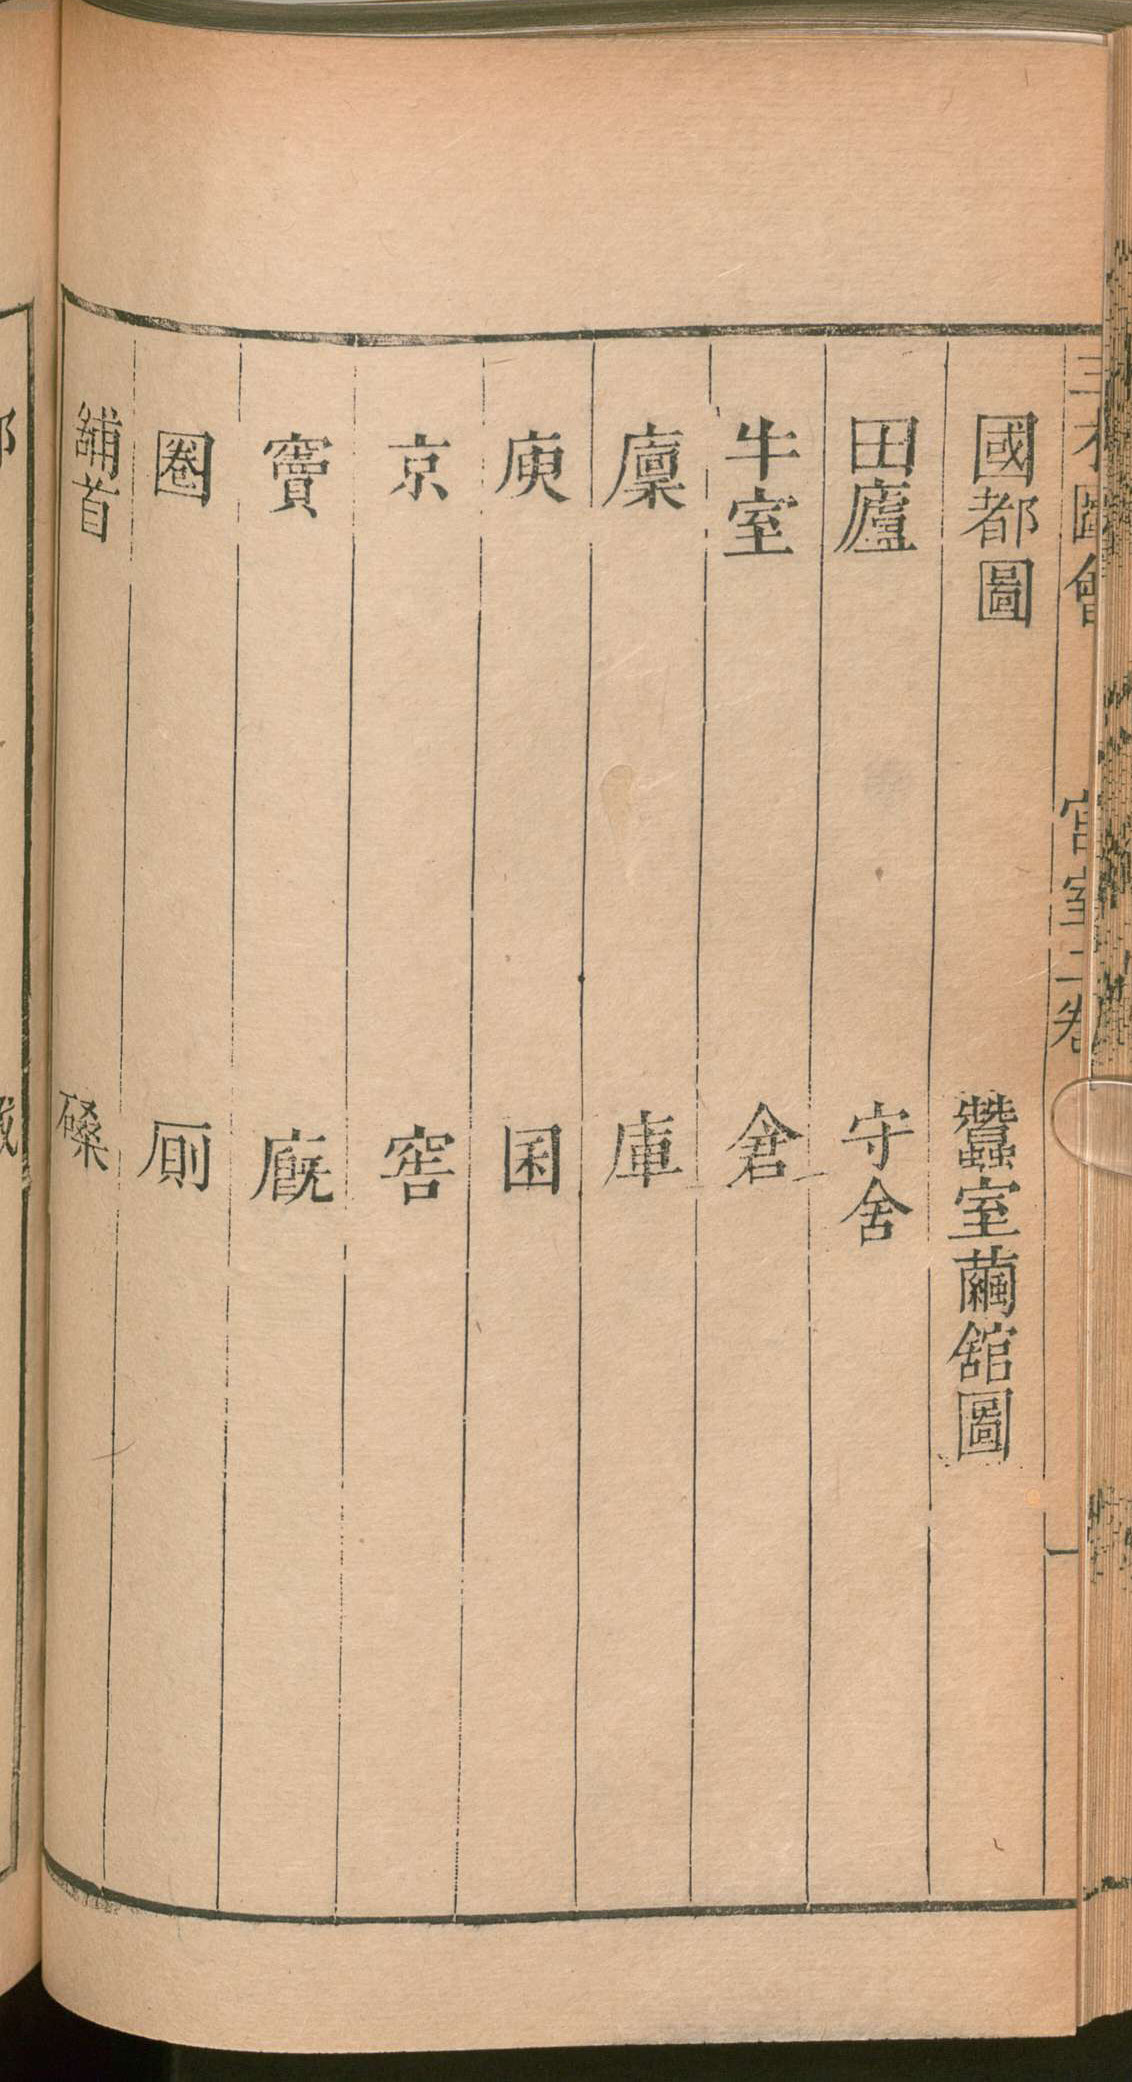 三才圖會 宮室二卷 一
國都圖 蠶室繭舘圖
田廬 守舍
牛室 倉
廩 庫
庾 囷
京 窖
竇 廐
圈 厠
鋪首 磉